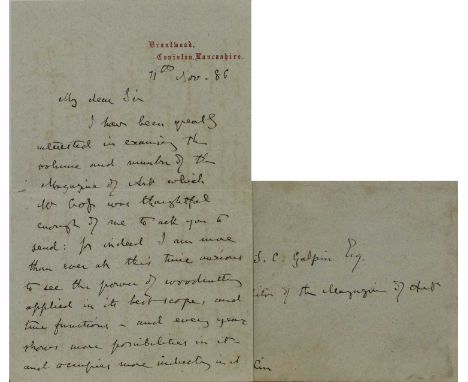 Brantwood,
Coniston, Lancashire.
11th Nov. 86
My dear Sir
I have been greatly
interested in examining the
volume and number of the
Magazine of Art which
Mr was thoughtful
enough of me to ask you to
send: for indeed I am more
than ever at this time anxious
to see the power of woodcutting
applied in its best scope, and
true functions - and every year
shows more possibilities in it -
and occupies more industry in it
S. C. Galpin Esq.
itor of the Magazine of Art